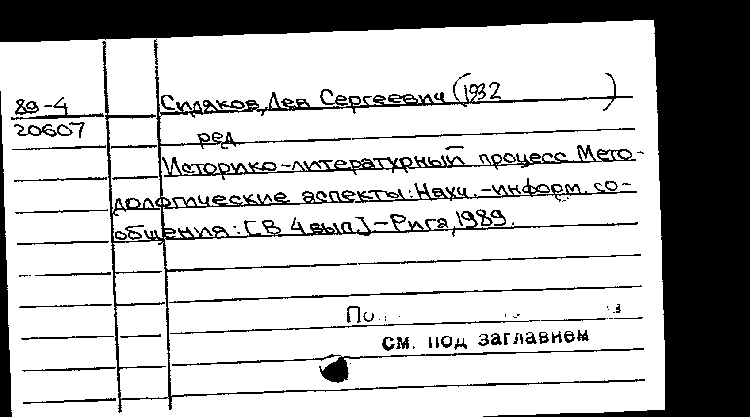 89-4 Сидяков, Лев Сергеевич (1932 )
20607 ред
Историко-литературный процесс Мето-
дологические аспекты: Научн.-информ. со-
общения: [В 4 вып.] - Рига, 1989.
см. под заглавием